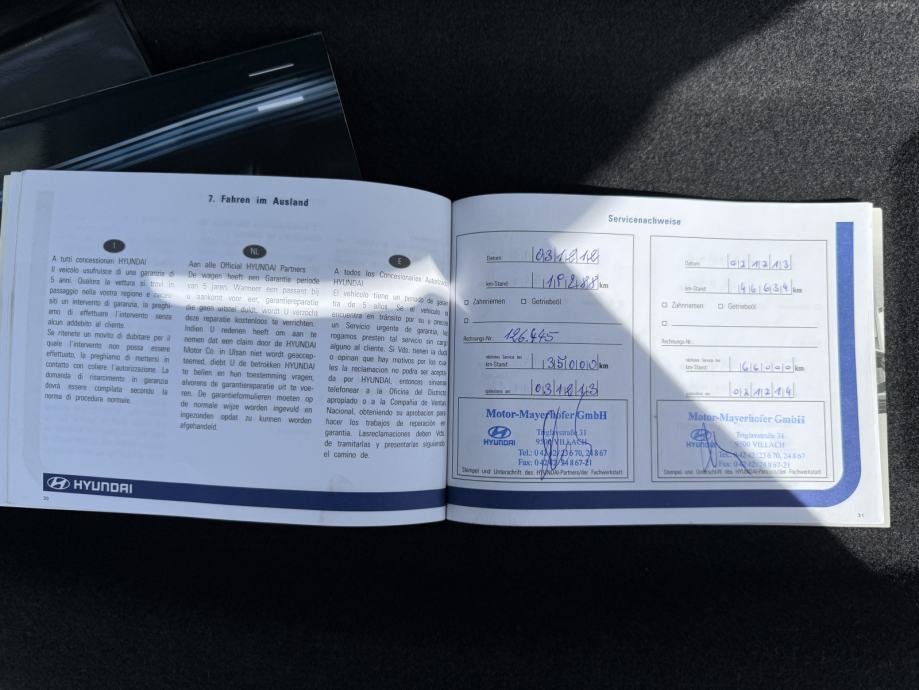 7. Fahren im Ausland
I
A tutti concessionari HYUNDAI
Il veicolo usufruisce di una garanzia di
5 anni. Qualora la vettura si trovi in
passaggio nella vostra regione e necessi-
siti un intervento di garanzia, la preghi-
amo di effettuare l'intervento senza
alcun addebito al cliente.
Se ritenete un movito di dubitare per il
quale l'intervento non possa essere
effettuato, la preghiamo di mettersi in
contatto con coliere l'autorizazione. La
domanda di risarcimento in garanzia
dovrà essere compilata secondo la
norma di procedure normale.
NL
Aan alle Official HYUNDAI Partners
De wagen heeft een Garantie periode
van 5 jaren. Wanneer een passant bij
u aankomt voor eer, garantiereparatie
die geen uitstel duldt, wordt U verzocht
deze reparatie kostenloos te verrichten.
Indien U redenen heeft om aan te
nemen dat een claim door de HYUNDAI
Motor Co. in Ulsan niet wordt geaccep-
teerned, diebt U de betrokken HYUNDAI
te bellen en hun toestemming vragen,
alvorens de garantiereparatie uit te voe-
ren. De garantieformulieren moeten op
de normale wijze worden ingevuld en
ingezonden opdat zu kunnen worden
afgehandeld.
E
A todos los Concesionarios Autorizado
HYUNDAI
El vehículo tiene un periodo de garan-
tia de 5 años. Se el vehiculo
encuentra en tránsito por su e precisa
un Servicio urgente de garantía, le
rogamos presten tal servicio sin cargo
alguno al cliente. Si Vds. tienen la duda
o opinan que hay motivos por los cua
les la reclamacion no podra ser acepta-
da por HYUNDAI, entonces sirvanse
telefonear a la Oficina del Districto
apropiado o a la Compañia de Ventas
Nacional, obteniendo su aprobacion para
hacer los trabajos de reparación en
garantia. Lasreclamaciones deben Vds.
de tramitarlas y presentarlas siguiendo
el camino de.
HYUNDAI
30
Servicenachweise
Datum: 031212
km-Stand: 18288 km
Zahnriemen Getriebeöl
Rechnungs-Nr.: 126.445
nächstes Service bei
km-Stand: 35000 km
spätestens am: 031213
Motor-Mayerhofer GmbH
HYUNDAI
Triglavstraße 31
9500 VILLACH
Tel.: 0 42 42 / 23 6 70, 24 8 67
Fax: 0 42 42 / 24 8 67-21
Stempel und Unterschrift des HYUNDAI-Partners/der Fachwerkstatt
Datum: 021213
km-Stand: 46634 km
Zahnriemen Getriebeöl
Rechnungs-Nr.:
nächstes Service bei
km-Stand: 66000 km
spätestens am: 021214
Motor-Mayerhofer GmbH
HYUNDAI
Triglavstraße 31
9500 VILLACH
Tel.: 0 42 42 / 23 6 70, 24 8 67
Fax: 0 42 42 / 24 8 67-21
Stempel und Unterschrift des HYUNDAI-Partners/der Fachwerkstatt
31